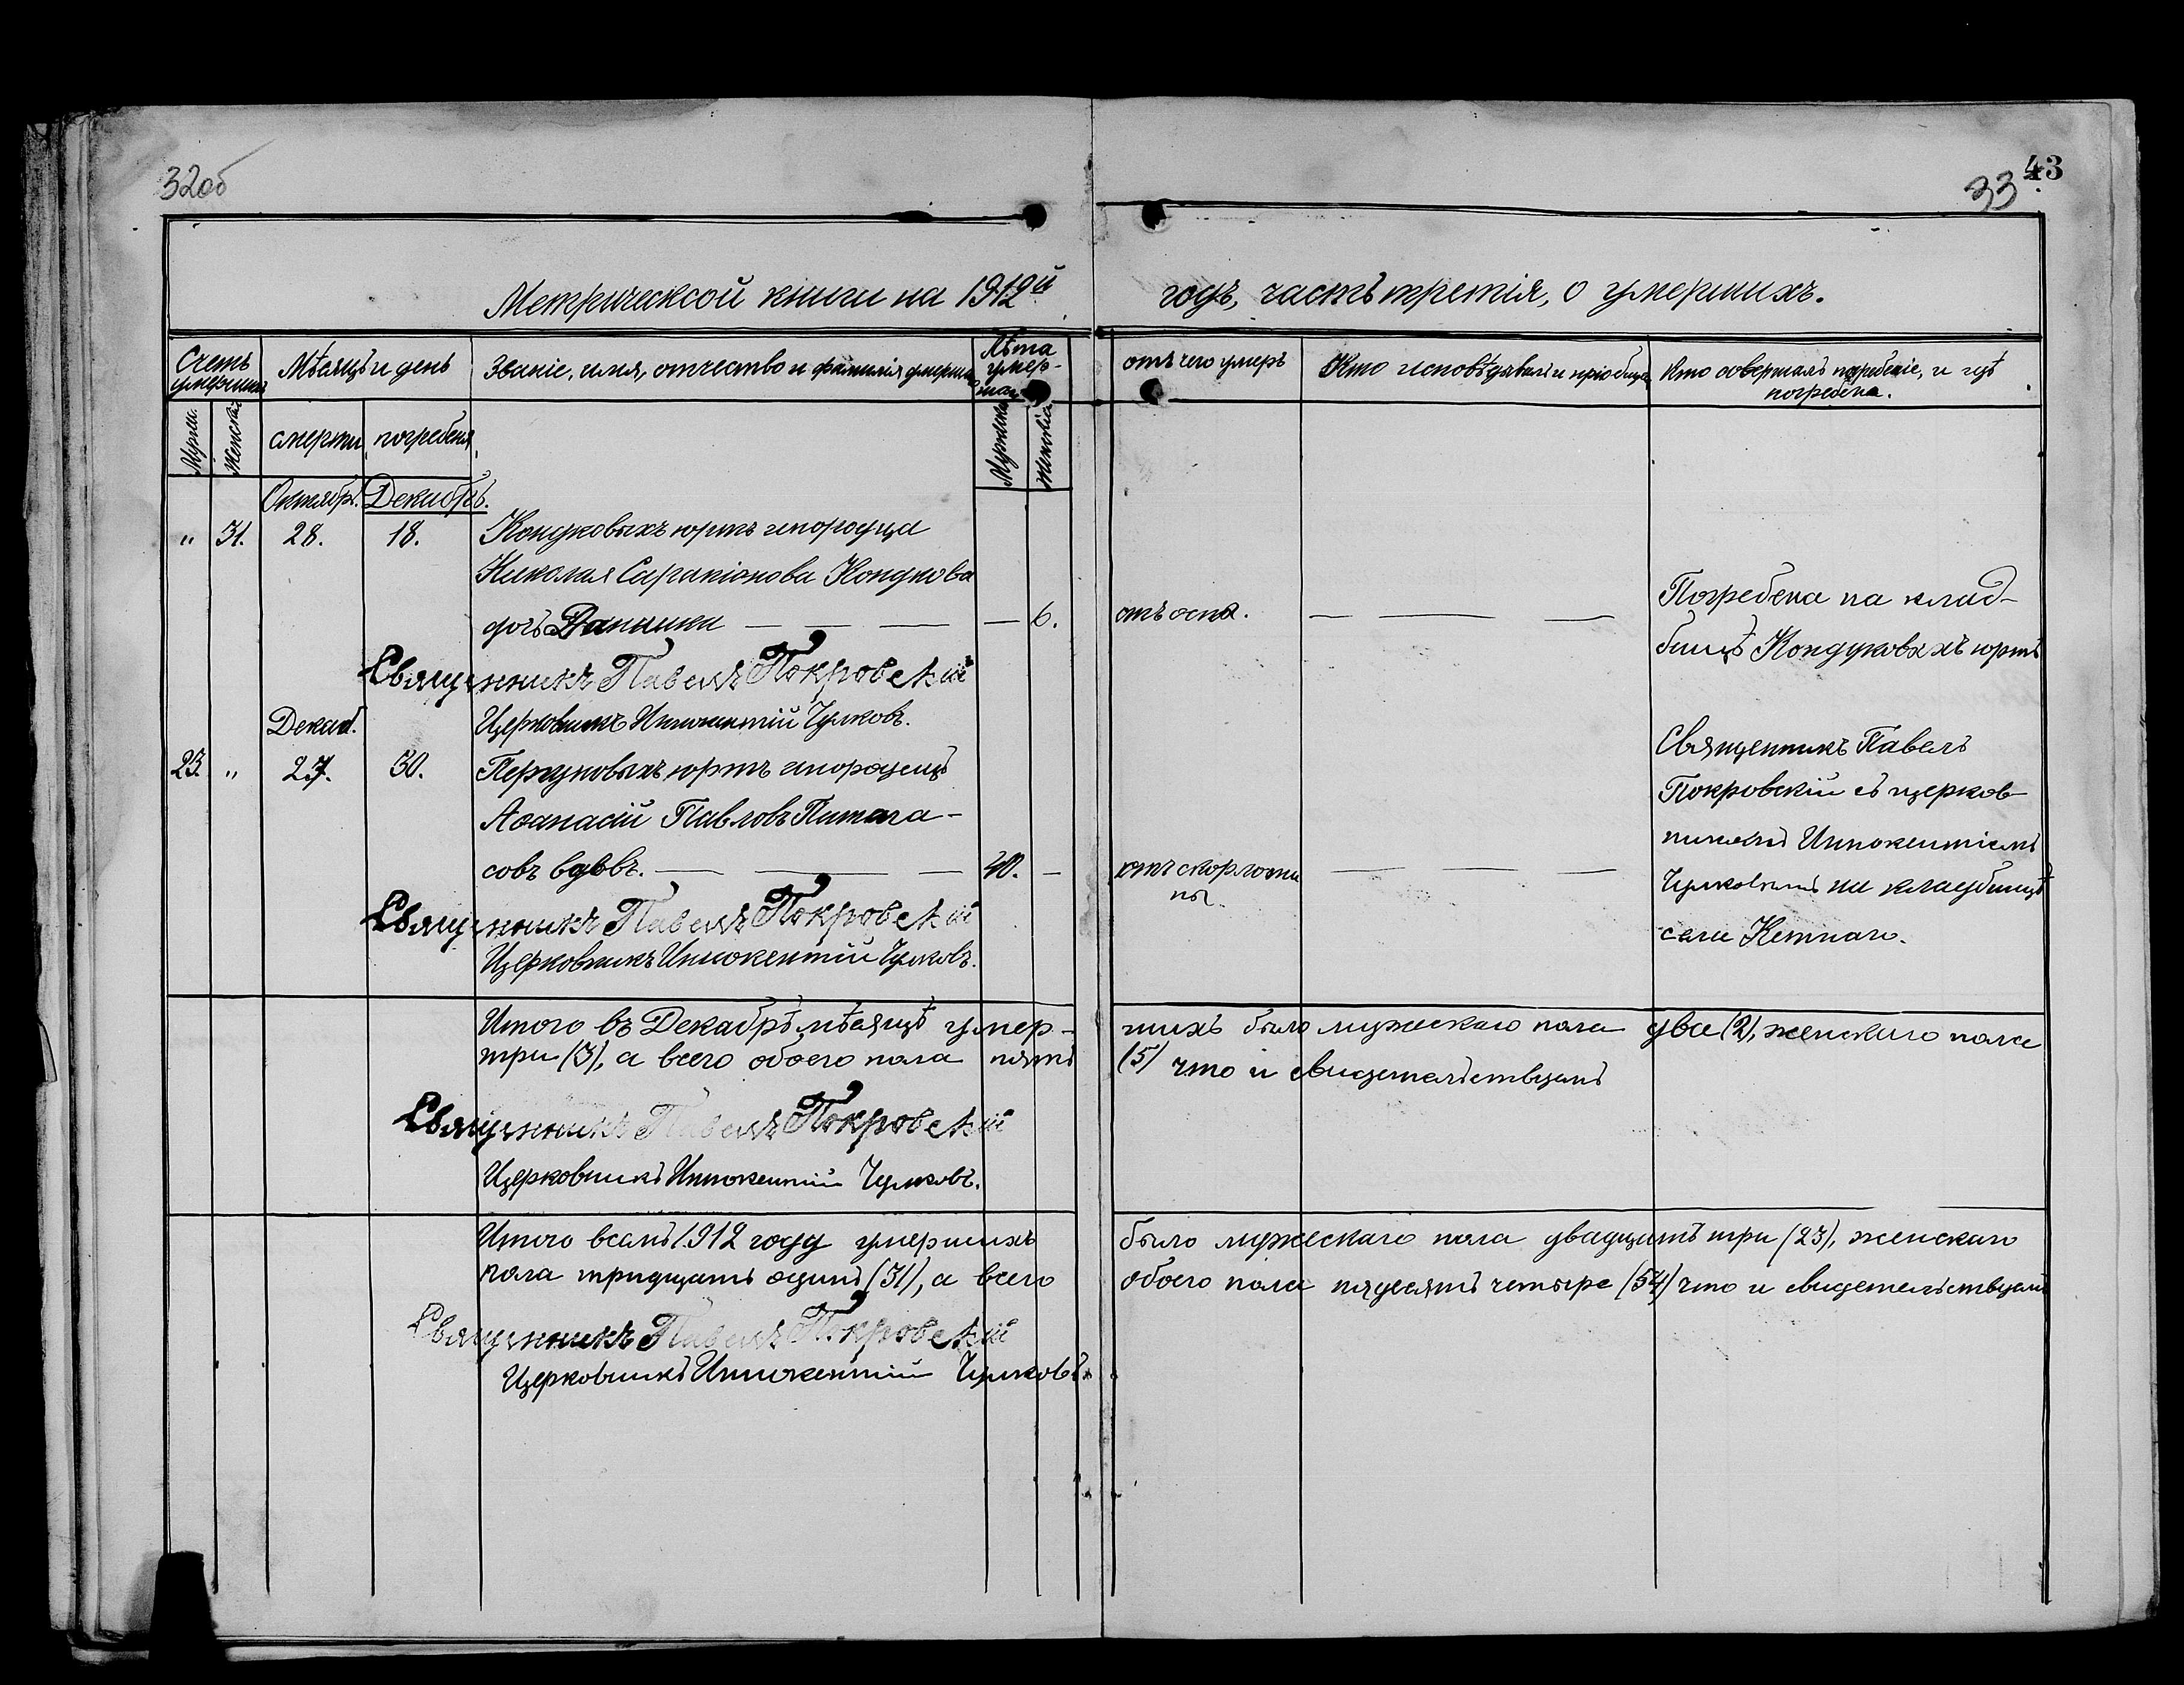 32об
43
33
Метрической книги на 1912й
годъ, часть третія, о умершихъ.
Счетъ умершихъ
Мѣсяцъ и день
Званіе, имя, отчество и фамилія умерша
Лѣта умер-шаго
отъ чего умеръ
Кто исповѣдывалъ и пріобща
Кто совершалъ погребеніе, и гдѣ
погребена.
Мужск.
Женска
смерти
погребенія
Мужска
женскія
Октябрь.
Декабрь.
" 31. 28. 18. Кондуковыхъ юртъ инородца
Николая Сарапіонова Кондукова
дочь — — — — 6.
отъ оспа. — — —
Погребена на клад-
бищѣ Кондуковхъ юртъ
Священникъ Павелъ Покровскій
Церковникъ Иннокентій Чулковъ.
Декаб.
23. " 27. 30. юртъ инородецъ
Афанасій Павловъ
совъ вдовъ. — — — 40. —
отъ скорлоти
ны.
— — —
Священникъ Павелъ
Покровскій съ церков
никомъ Иннокентіемъ
Чулковымъ на кладбищѣ
села Кетнаго.
Священникъ Павелъ Покровскій
Церковникъ Иннокентій Чулковъ.
Итого въ Декабрѣ мѣсяцѣ умер-
шихъ было мужескаго пола два (2), женскаго пола
три (3), а всего обоего пола пять
(5) что и свидетельствуемъ
Священникъ Павелъ Покровскій
Церковникъ Иннокентій Чулковъ.
Итого всемъ 1912 году умершихъ
было мужескаго пола двадцать три (23), женскаго
пола тридцать одинъ (31), а всего
обоего пола пядесятъ четыре (54) что и свидетельствуемъ
Священникъ Павелъ Покровскій
Церковникъ Иннокентій Чулковъ.